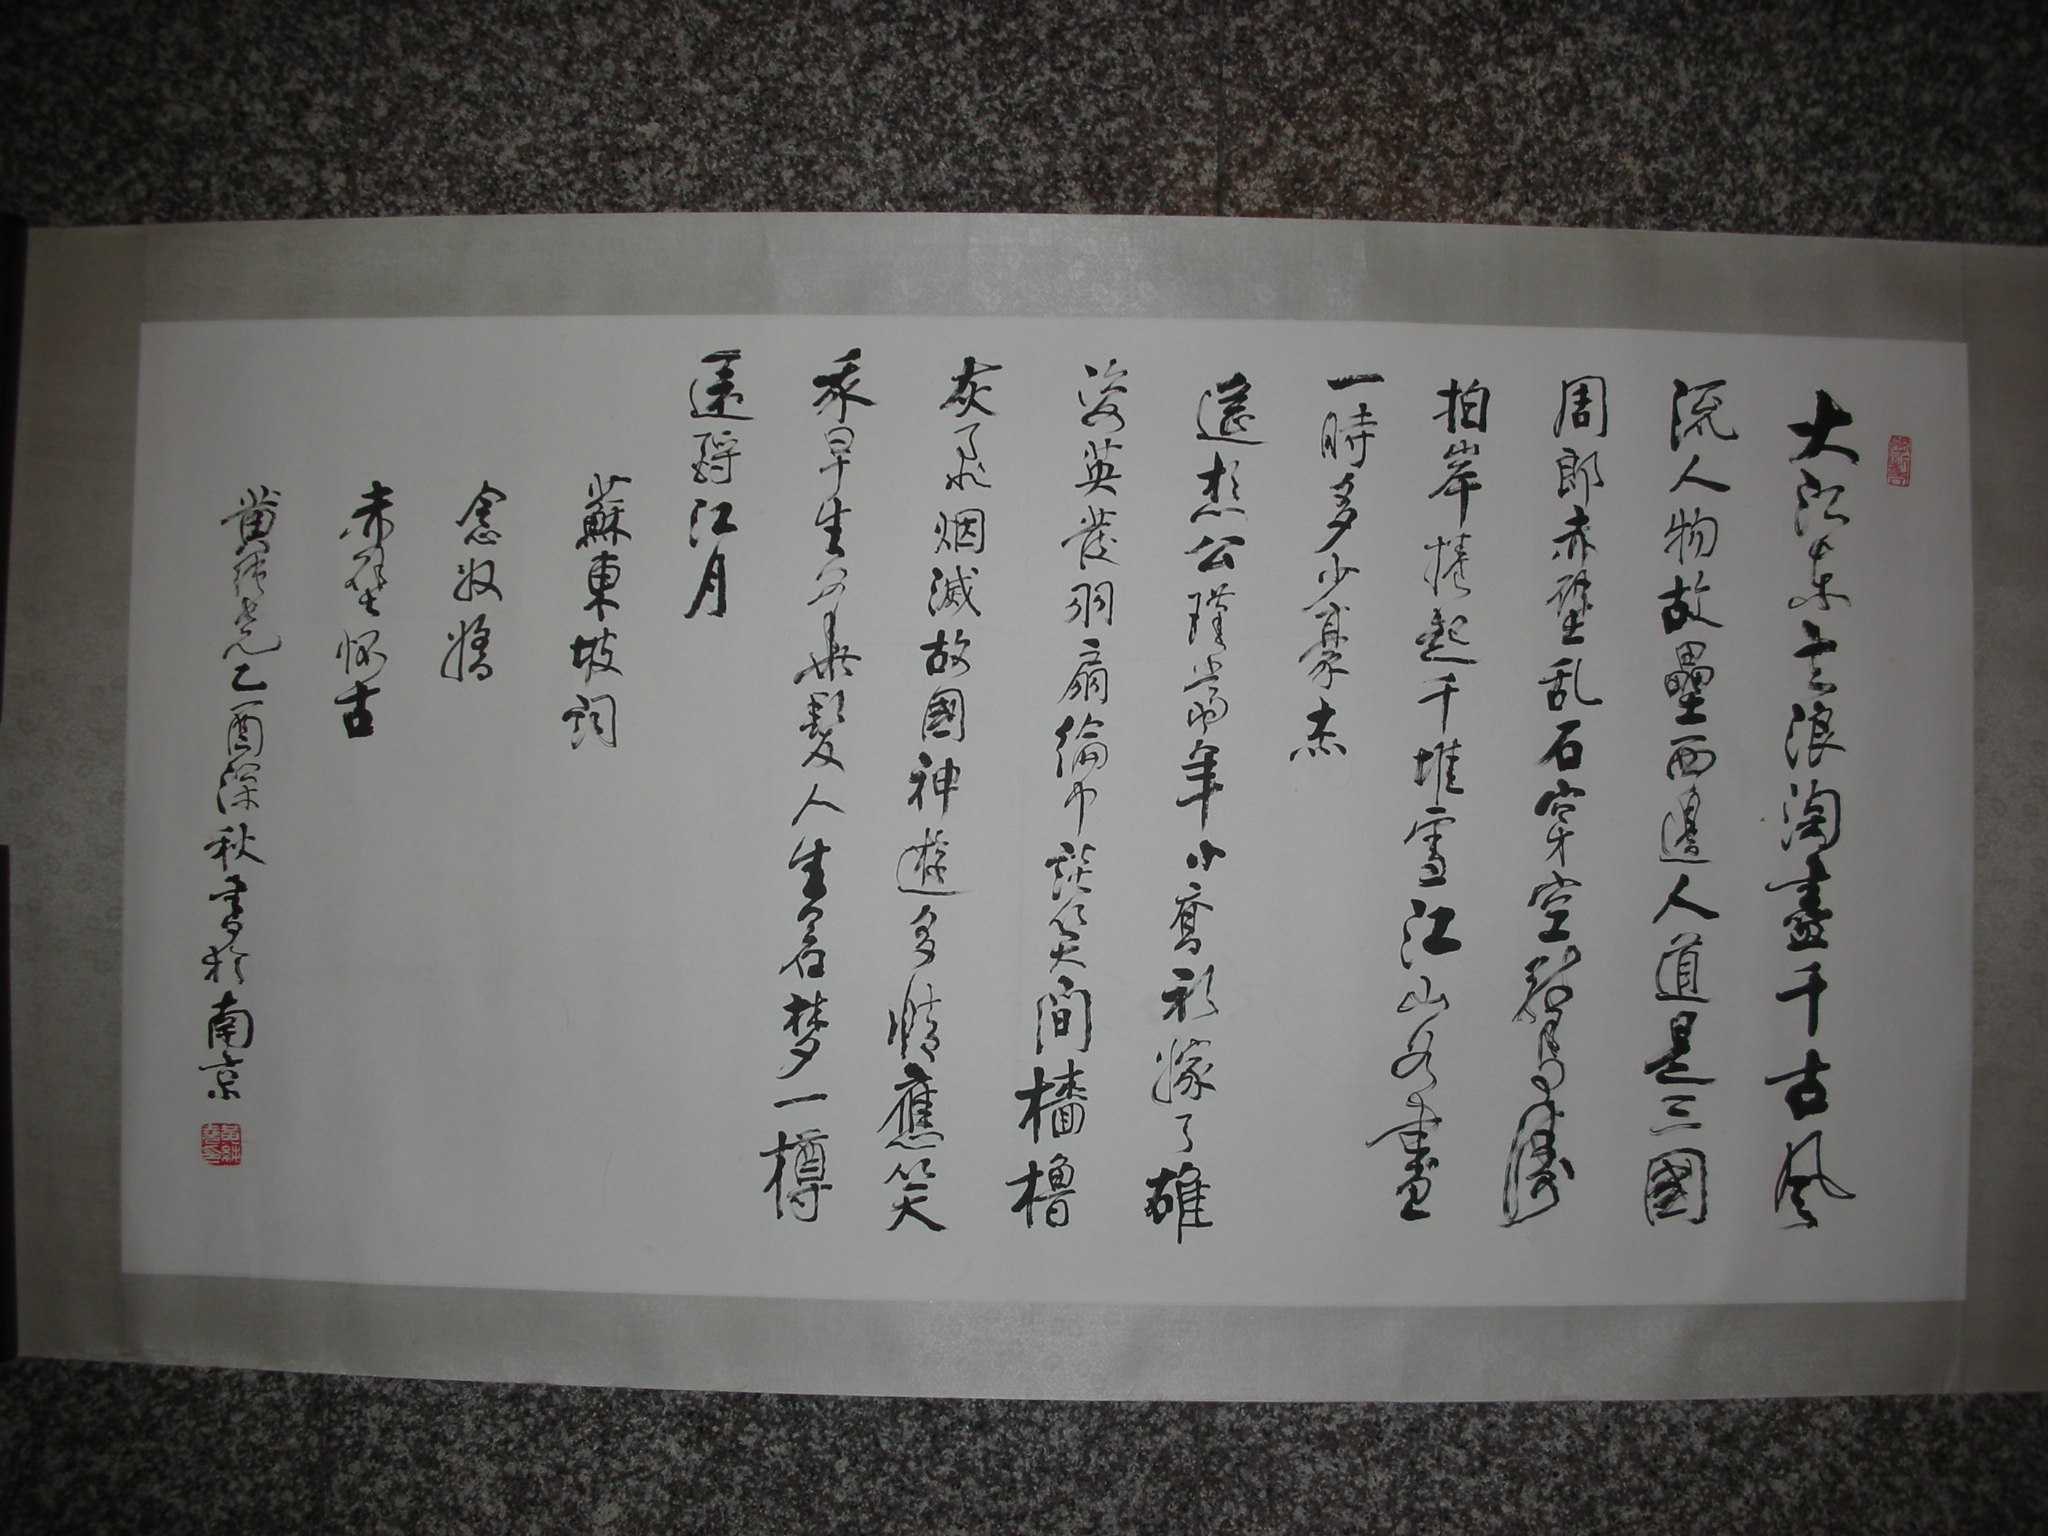 大江东去浪淘盡千古风
流人物故壘西邊人道是三國
周郎赤壁乱石穿空驚濤
拍岸捲起千堆雪江山如畫
一時多少豪杰
遙想公瑾當年小喬初嫁了雄
姿英發羽扇綸巾談笑间檣櫓
灰飛烟滅故國神遊多情應笑
我早生華髮人生若梦一樽
還酹江月
蘇東坡词
念奴嬌
赤壁怀古
黄尧乙酉深秋書於南京